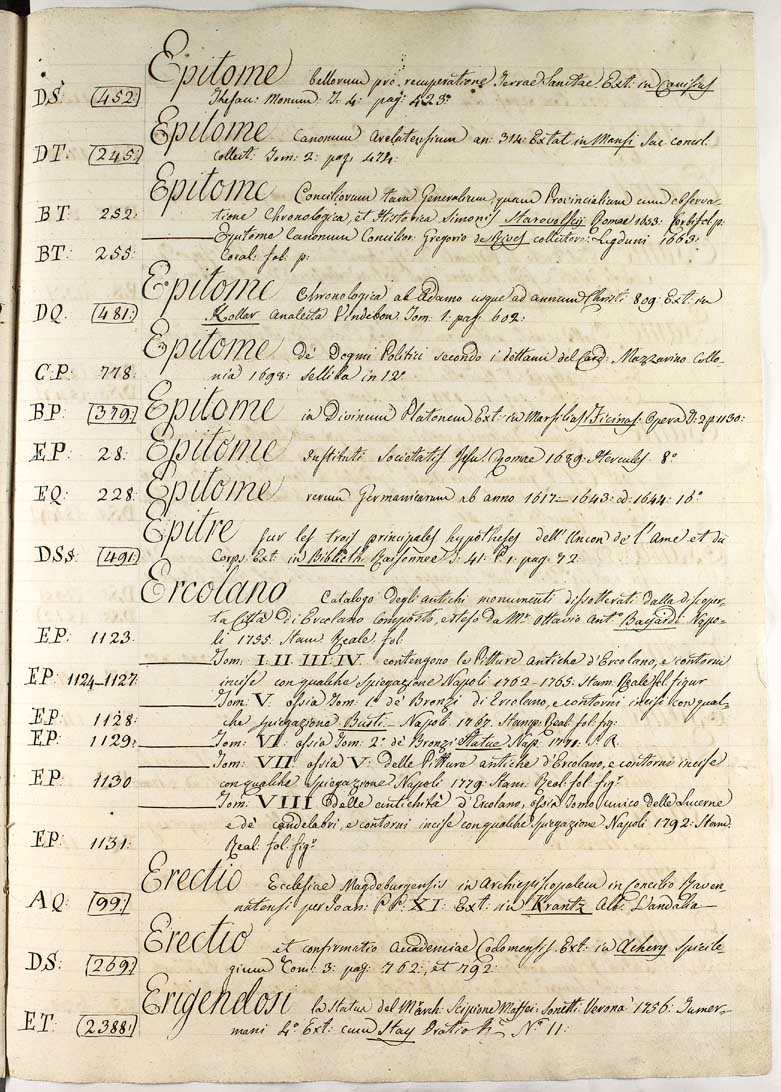 Epitome bellorum pro recuperatione Terrae Sanctae. Ext: in Canisius
DS: 452: Thesau: Monum: T. 4: pag: 423:
Epitome Canonum Arelatensium an: 314: Extat in Mansi Sac: Concil:
DT: 245: collect: Tom: 2: pag: 474:
Epitome Conciliorum tam Generalium, quam Provincialium cum observa-
BT 252: tione Chronologica, et Historica Simonis Starovolscij Romae 1653: fol: p:
Epitome Canonum Concilior: Gregorio de Rives collectore: Lugduni 1663:
BT: 255: fol: p:
Epitome Chronologica ab Adamo usque ad annum Christi 809: Ext: in
DQ: 481: Kollar Analecta Vindobon: Tom: 1: pag: 602:
Epitome de' Dogmi Politici secondo i dettami del Card: Mazzarino Collo-
CP: 778: nia 1698: Selliba in 12
BP: 379: Epitome in Divinum Platonem Ext: in Marsilius Ficinus: Opera T: 2 p 1130:
EP: 28: Epitome Instituti Societatis Jesu. Romae 1689: Hercules: 8°
EQ: 228: Epitome rerum Germanicarum ab anno 1617–1643: ed: 1644: 16°
Epitre sur les trois principales hypotheses dell' Union de l'Ame et du
DSs: 491: Corps: Ext: in Biblioth: Raisonnee T: 41: P. 1: pag: 72:
Ercolano Catalogo degli antichi monumenti dissotterati dalla discoper-
ta Città di Ercolano composto, e steso da Mr. Ottavio Ant° Bayardi Napo-
EP: 1123: li 1755: Stam: Reale fol:
Tom: I. II. III. IV. contengono le Pitture antiche d'Ercolano, e contorni
EP: 1124–1127: incise con qualche Spiegazione Napoli 1762–1765: Stam: Reale fol: figur
Tom: V: ossia Tom: 1° de' Bronzi di Ercolano, e contorni incisi con qual-
EP: 1128: che spiegazione Busti. Napoli 1767: Stamp: Real: fol: fig:
EP: 1129: Tom: VI: ossia Tom: 2° de' Bronzi Statue Nap: 1771: S. R.
Tom: VII ossia V: delle Pitture antiche d'Ercolano, e contorni incise
EP: 1130 con qualche spiegazione Napoli 1779: Stam: Real: fol: figr
Tom: VIII delle antichità d'Ercolano, ossia Tomo unico delle Lucerne
e dè candelabri, e contorni incise con qualche spiegazione Napoli 1792: Stam:
EP: 1131: Real: fol: figr
Erectio Ecclesiae Magdeburgensis in Archiepiscopalem in Concilio Raven-
AQ: 99: natensi per Joan: PP: XI: Ext: in Krantz Alb: Vandalia
Erectio et confirmatio Academiae Ext: in Achery Spicile-
DS: 269: gium Tom: 3: pag: 762: et 792:
Erigendosi la statua del March: Scipione Maffei Sonetti Verona 1756: Tumer-
ET: 2388: mani 4° Ext: cum Stay Oratio &c N° 11: